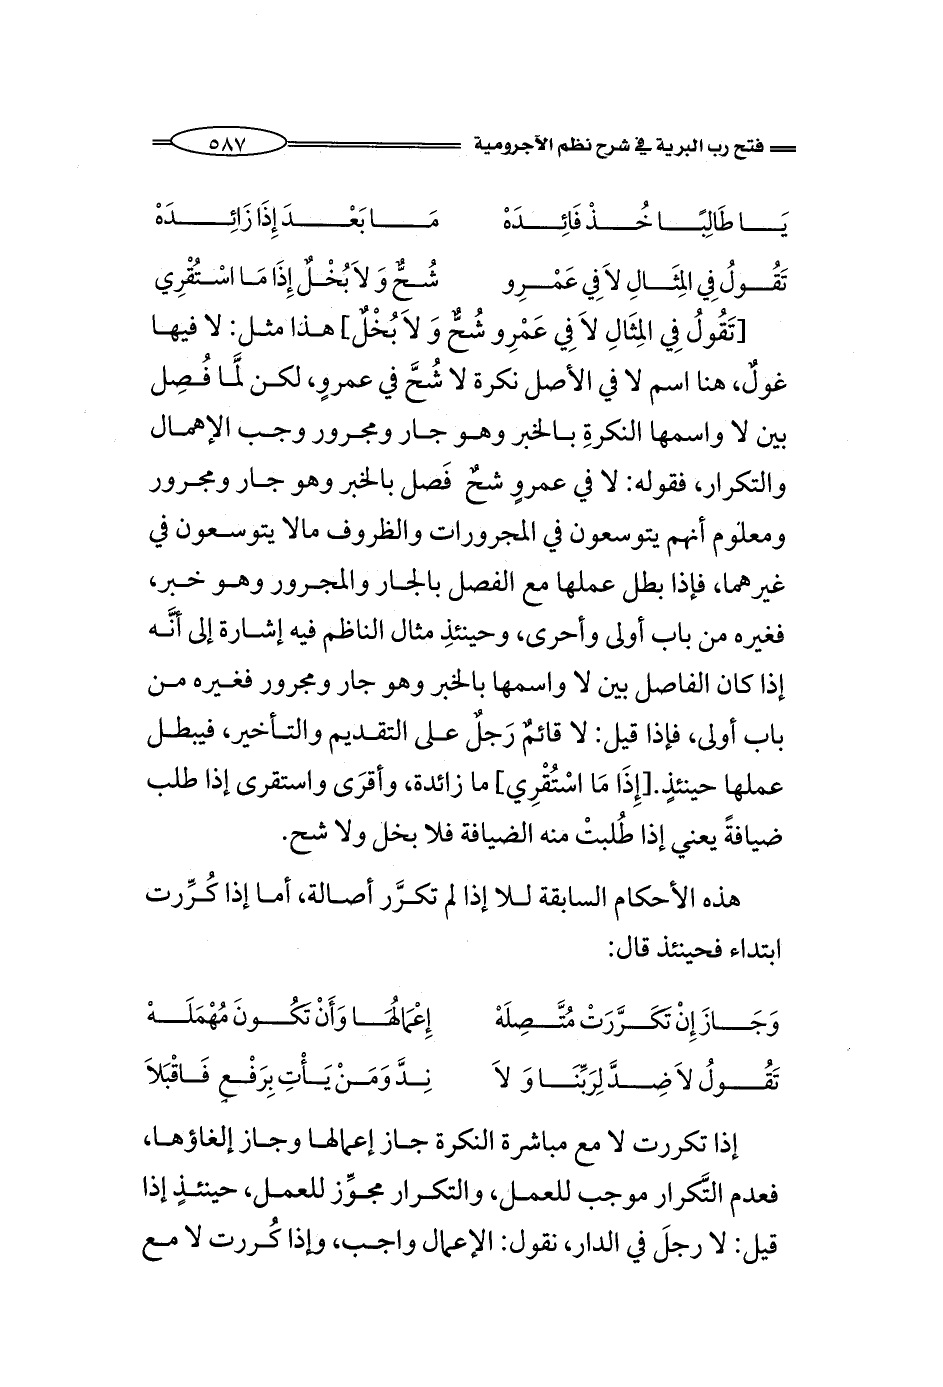 فتح رب البرية في شرح نظم الآجرومية ٥٨٧
يَا طَالِبًا خُذْ فَائِدَهْ مَا بَعْدَ إِذَا زَائِدَهْ
تَقُولُ فِي المِثَالِ لاَ فِي عَمْرِو شُحٌّ وَ لاَ بُخْلٌ إِذَا مَا اسْتُقْرِي
[تَقُولُ فِي المِثَالِ لاَ فِي عَمْرِو شُحٌّ وَ لاَ بُخْلٌ] هذا مثل: لا فيها
غولٌ، هنا اسم لا في الأصل نكرة لا شُحَّ في عمروٍ، لكن لَمَّا فُصِل
بين لا واسمها النكرةِ بالخبر وهو جار ومجرور وجب الإهمال
والتكرار، فقوله: لا في عمروٍ شحٌ فَصل بالخبر وهو جار ومجرور
ومعلوم أنهم يتوسعون في المجرورات والظروف مالا يتوسعون في
غيرهما، فإذا بطل عملها مع الفصل بالجار والمجرور وهو خبر،
فغيره من باب أولى وأحرى، وحينئذٍ مثال الناظم فيه إشارة إلى أنَّه
إذا كان الفاصل بين لا واسمها بالخبر وهو جار ومجرور فغيره من
باب أولى، فإذا قيل: لا قائمٌ رَجلٌ على التقديم والتأخير، فيبطل
عملها حينئذٍ.[إِذَا مَا اسْتُقْرِي] ما زائدة، وأقرَى واستقرى إذا طلب
ضيافةً يعني إذا طُلبتْ منه الضيافة فلا بخل ولا شح.
هذه الأحكام السابقة للا إذا لم تكرَّر أصالة، أما إذا كُرِّرت
ابتداء فحينئذ قال:
وَجَازَ إِنْ تَكَرَّرَتْ مُتَّصِلَهْ إِعْمَالُهَا وَأَنْ تَكُونَ مُهْمَلَهْ
تَقُولُ لاَ ضِدَّ لِرَبِّنَا وَ لاَ نِدَّ وَمَنْ يَأْتِ بِرَفْعٍ فَاقْبَلاَ
إذا تكررت لا مع مباشرة النكرة جاز إعمالها وجاز إلغاؤها،
فعدم التَّكرار موجب للعمل، والتكرار مجوِّز للعمل، حينئذٍ إذا
قيل: لا رجلَ في الدار، نقول: الإعمال واجب، وإذا كُررت لا مع